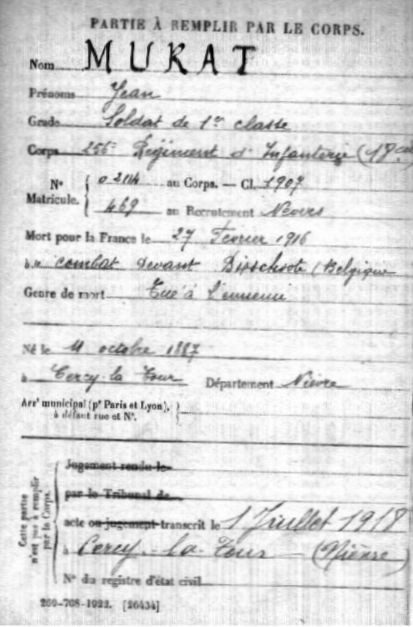 PARTIE À REMPLIR PAR LE CORPS.
Nom MURAT
Prénoms Jean
Grade Soldat de 1re classe
Corps 256e Régiment d'Infanterie (18e
N° 02114 au Corps. — Cl. 1907
Matricule. 469 au Recrutement Nevers
Mort pour la France le 27 Fevrier 1916
à combat devant (Belgique
Genre de mort Tué à l'ennemi
Né le 4 octobre 1887
à Cercy-la-Tour Département Nièvre
Arrt municipal (pr Paris et Lyon),
à défaut rue et N°.
Cette partie n'est pas à remplir par le Corps.
Jugement rendu le
par le Tribunal de
acte ou jugement transcrit le 1 Juillet 1918
à Cercy-la-Tour (Nièvre)
N° du registre d'état civil
260-708-1922. [26434]